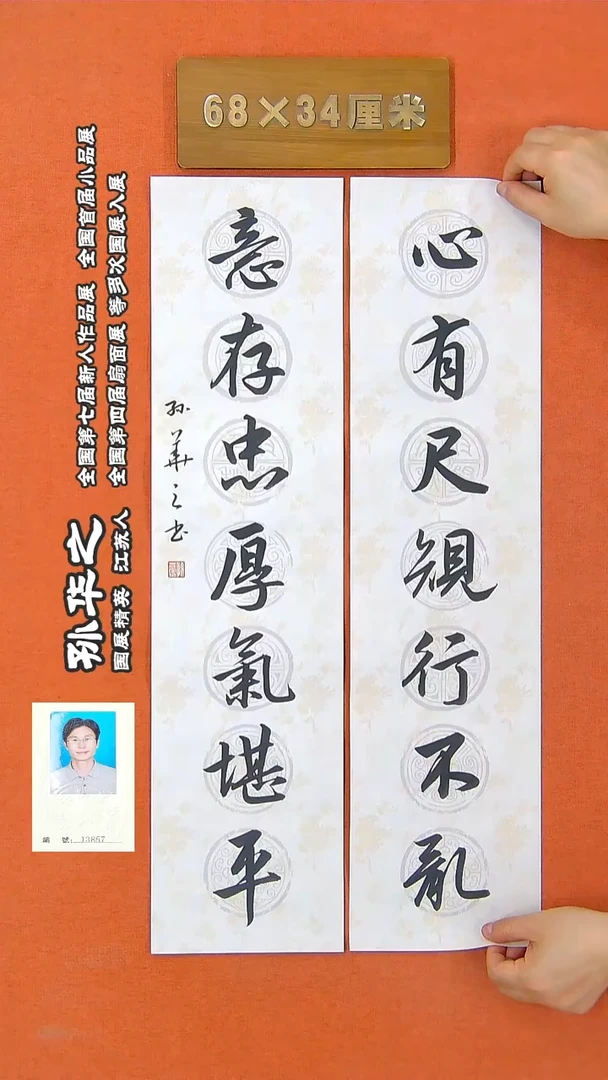 68×34厘米
心有尺規行不亂
意存忠厚氣堪平
孙華之书
全国第七届新人作品展 全国首届小品展
全国第四届扇面展 等多次国展入展
孙华之
国展精英 江苏人
編 號： 13867